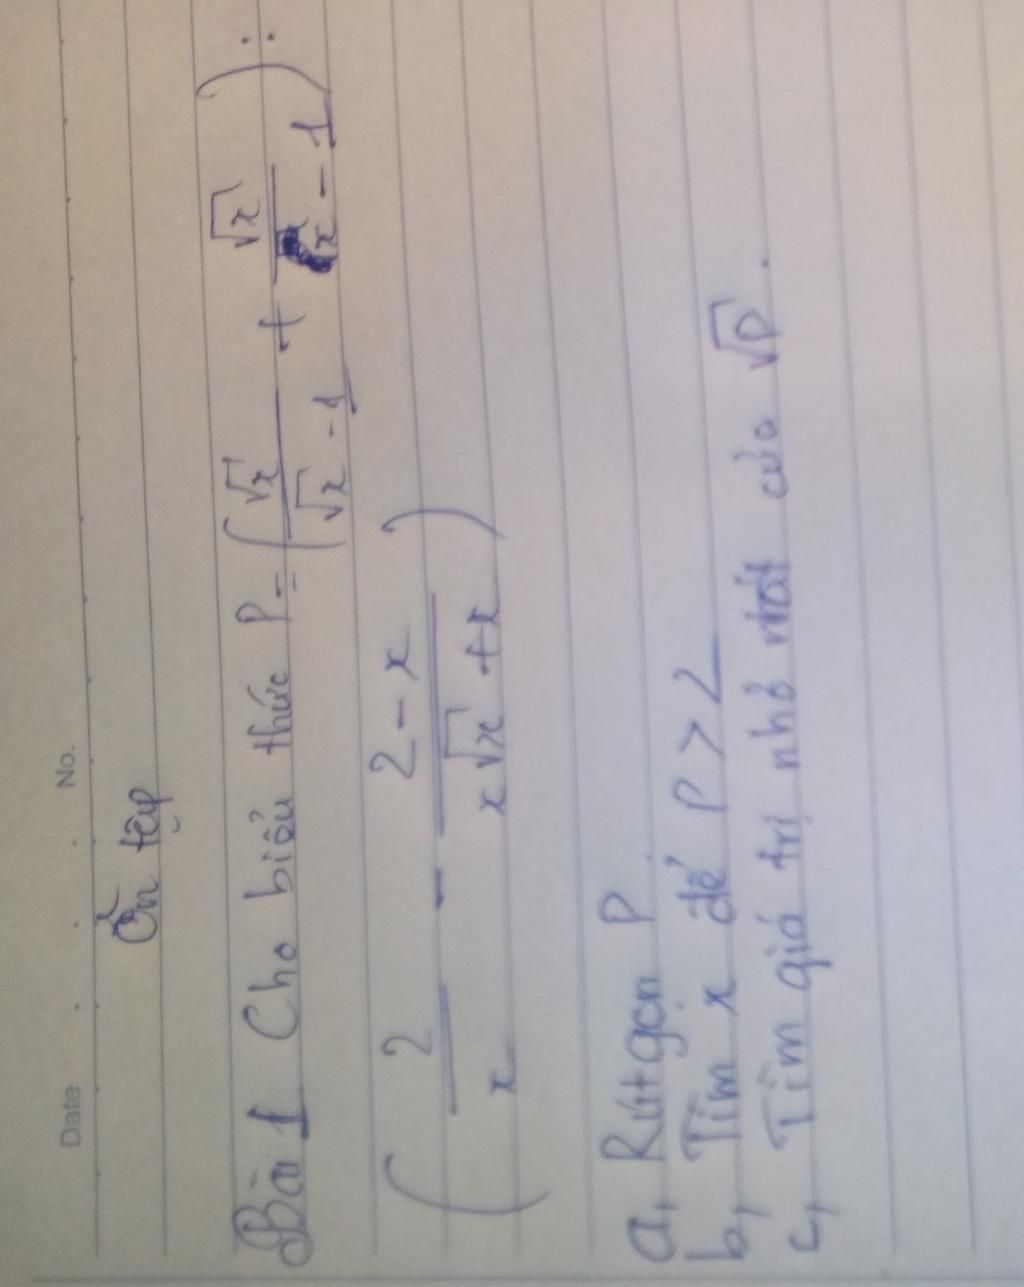 Date . . . No.
Ôn tập
Bài 1 Cho biểu thức P = (√x/(√x - 1) + √x/(x - 1)) :
(2/x - (2 - x)/(x√x + x))
a, Rút gọn P
b, Tìm x để P > 2
c, Tìm giá trị nhỏ nhất của √P.